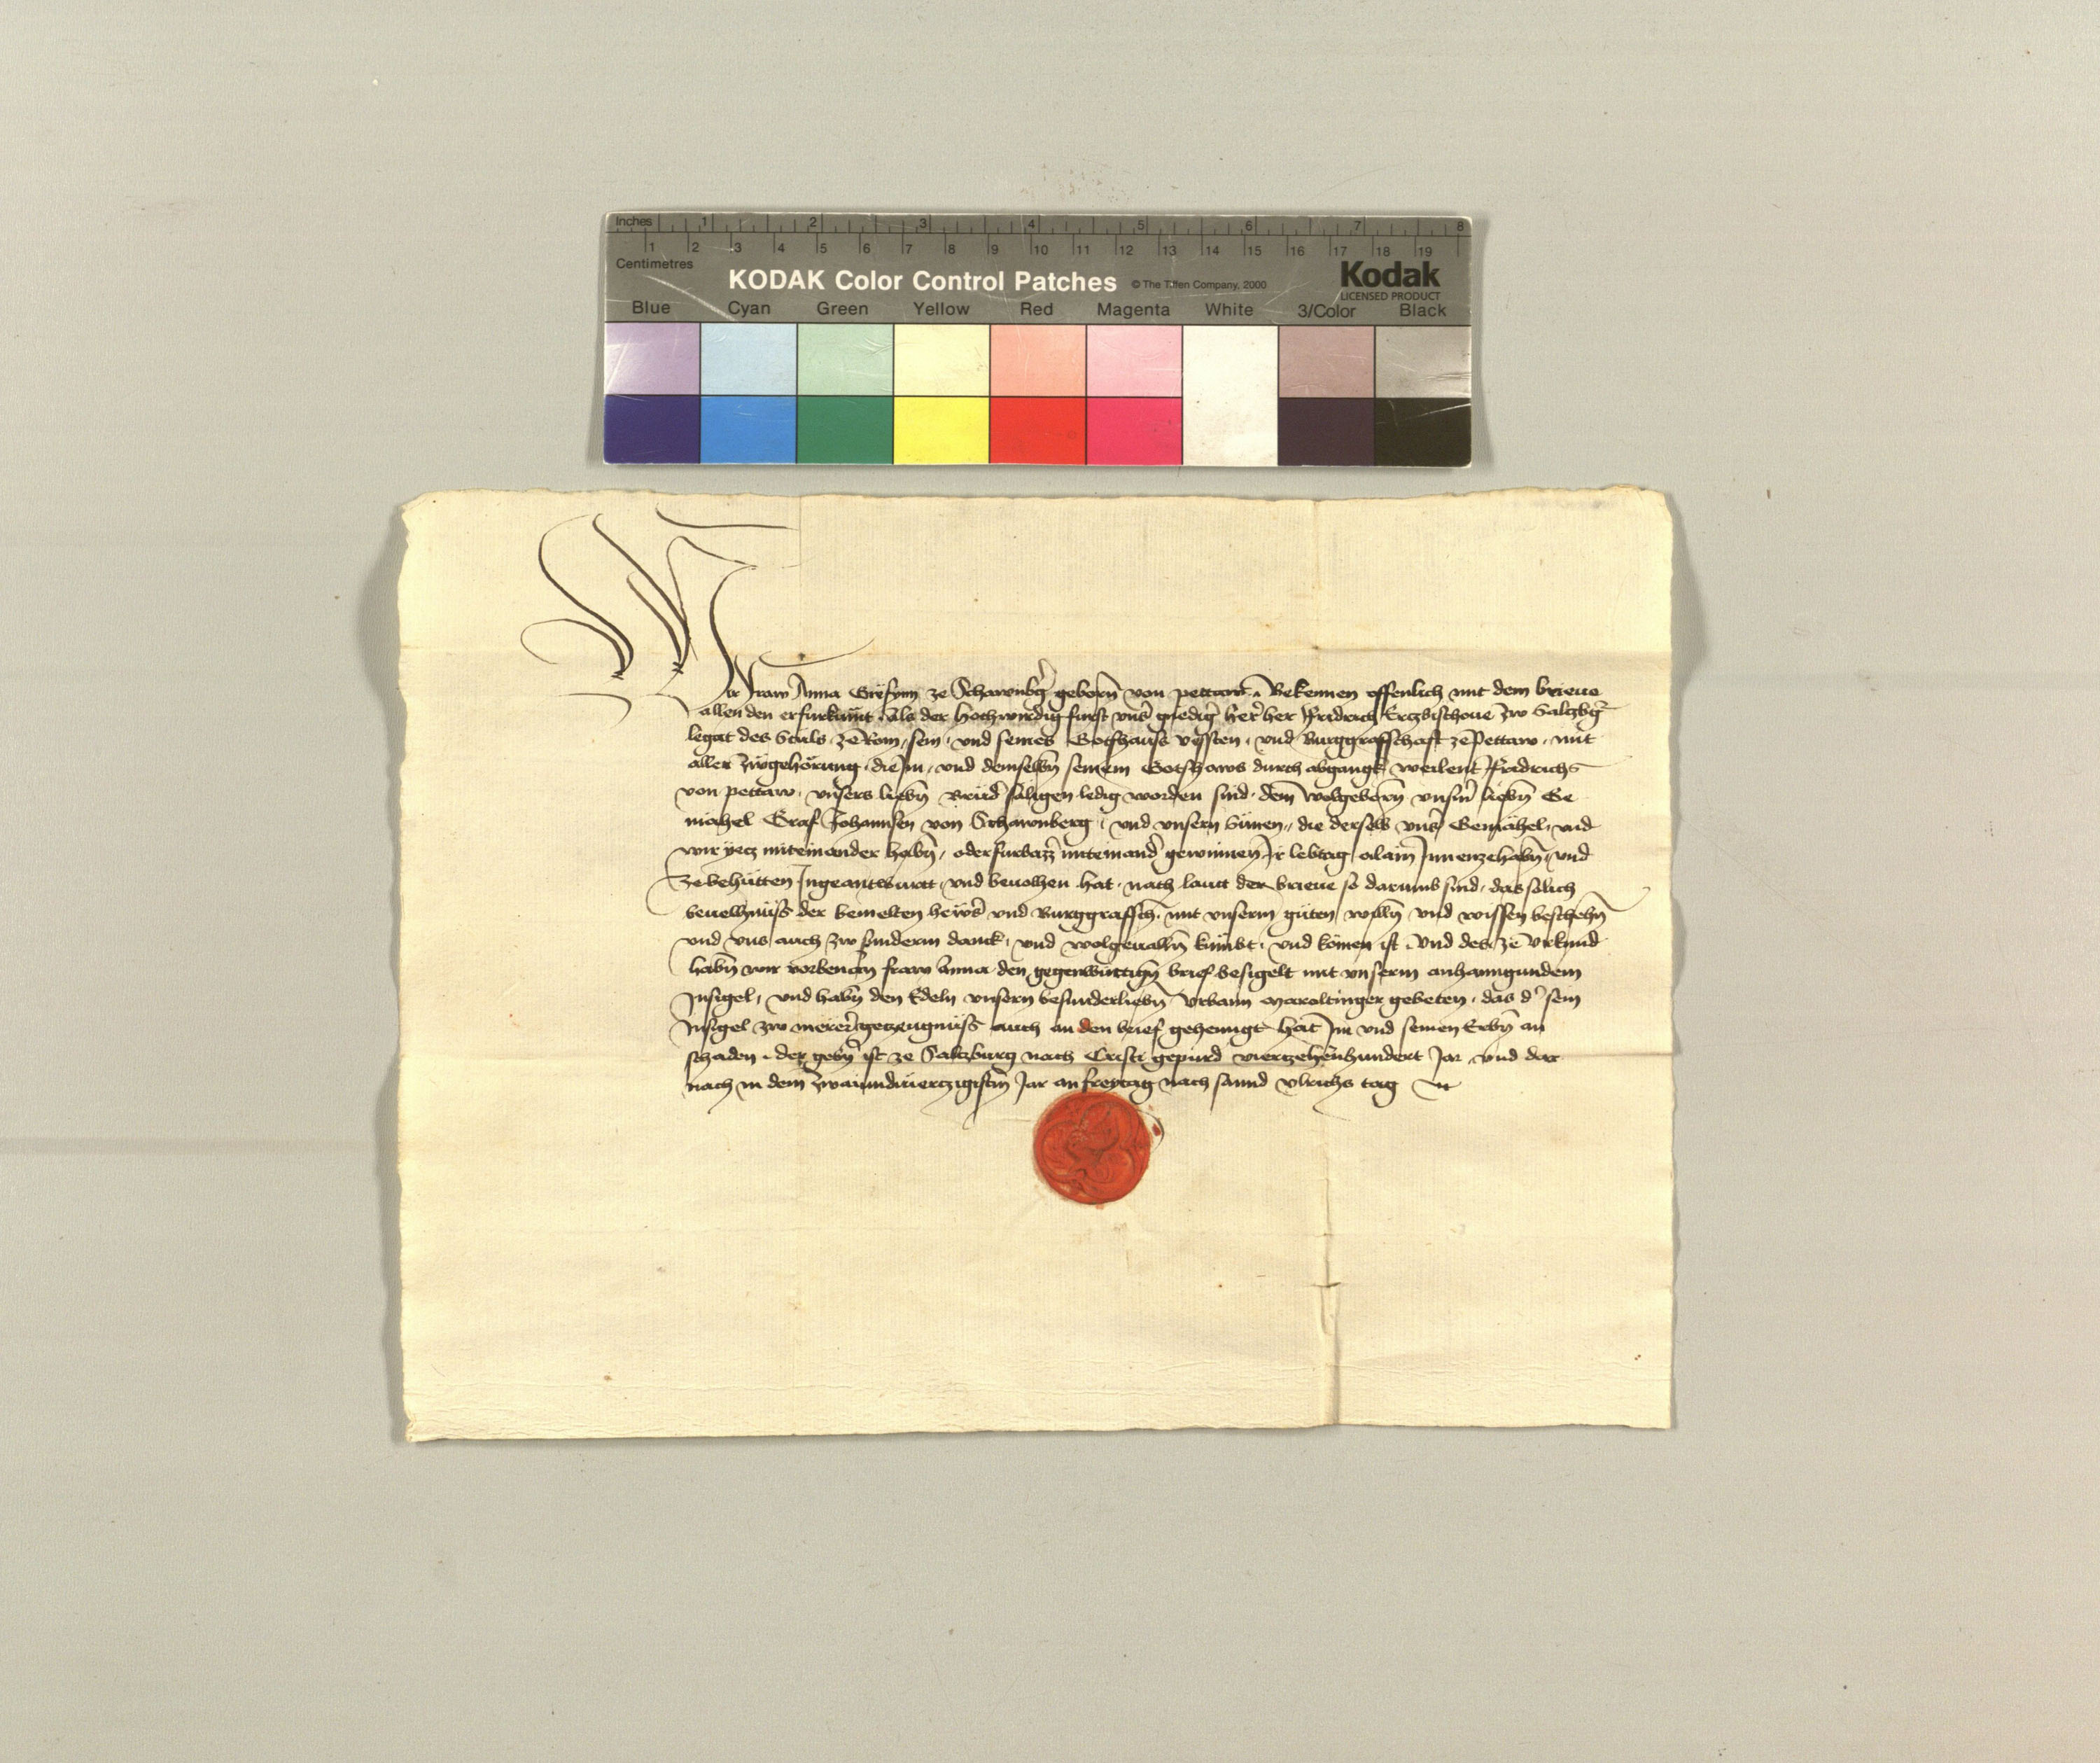 Inches 1 2 3 4 5 6 7 8
1 2 3 4 5 6 7 8 9 10 11 12 13 14 15 16 17 18 19
Centimetres
KODAK Color Control Patches © The Tiffen Company, 2000 Kodak
LICENSED PRODUCT
Blue Cyan Green Yellow Red Magenta White 3/Color Black
Wir Fraw Anna Grefynn ze Schawnbg̃ geborñ von pettaw. Bekennen offenlich mit dem brieue
allen den er furkumt. Als der hochwirdig furst vnser gnedig̃ her̃ her Fridrich Ertzbischoue zw Saltzbg̃
legat des Stuls ze Rom, sein, vnd seines Gotshauss vessten, vnd Burggrafschaft ze Pettaw, mit
aller zwgehörung, die Im, vnd demselbñ seinem Gotshaws durch abgangk weilent Fridrichs
von pettaw, vnsers liebñ Brud̃ sáligen ledig worden sind, dem wolgeborñ vnsm̃ liebñ Ge
mahel Graf Johannsen von Schawnberg, vnd vnsern Sünen, die derselb vnsr̃ Gemáhel, vnd
wir yecz miteinander habñ, oder furbazz miteinand̃ gewinnen, Ir lebtag alain Innenzehabñ, vnd
zebehütten Ingeantwurtt, vnd beuolhen hat, nach lautt der brieue so darumb sind, das sólich
beuelhnüss der bemelten hews̃ vnd Burggraffsch̃. mit vnserm güten willñ vnd wissen beschehñ
vnd vns auch zw sunderm danck, vnd wolgeuallñ kumbt, vnd kömen ist. Vnd des ze vrkund
habñ wir vorbenañ fraw Anna den gegenwürttigñ brief besigelt mit vnserm anhanngundem
Insigel, vnd habñ den Edeln vnsern besunderliebñ Vrbann Maroltinger gebeten, das d' sein
Insigel zw merer̃ gezeugnüss auch an den brief gehenngt hat Im vnd seinen Erbñ an
schaden. der gebñ ist ze Saltzburg nach Cristi gepürd viertzehenhundert Jar vnd dar
nach in dem zwaiundviertzigistñ Jar an freytag nach sannd Vlrichs tag